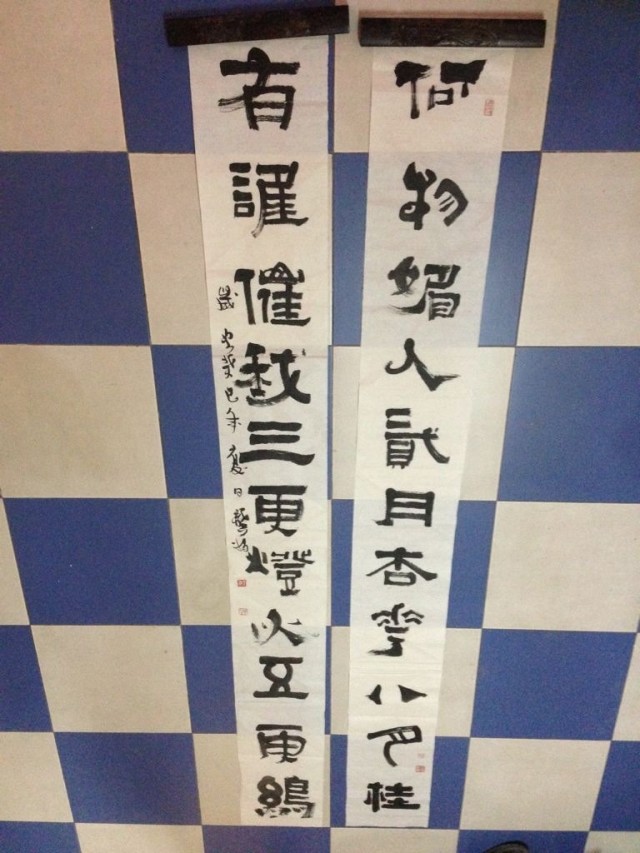 何物媚人貳月杏花八月桂
有誰催我三更燈火五更鷄
歲次癸巳年夏日